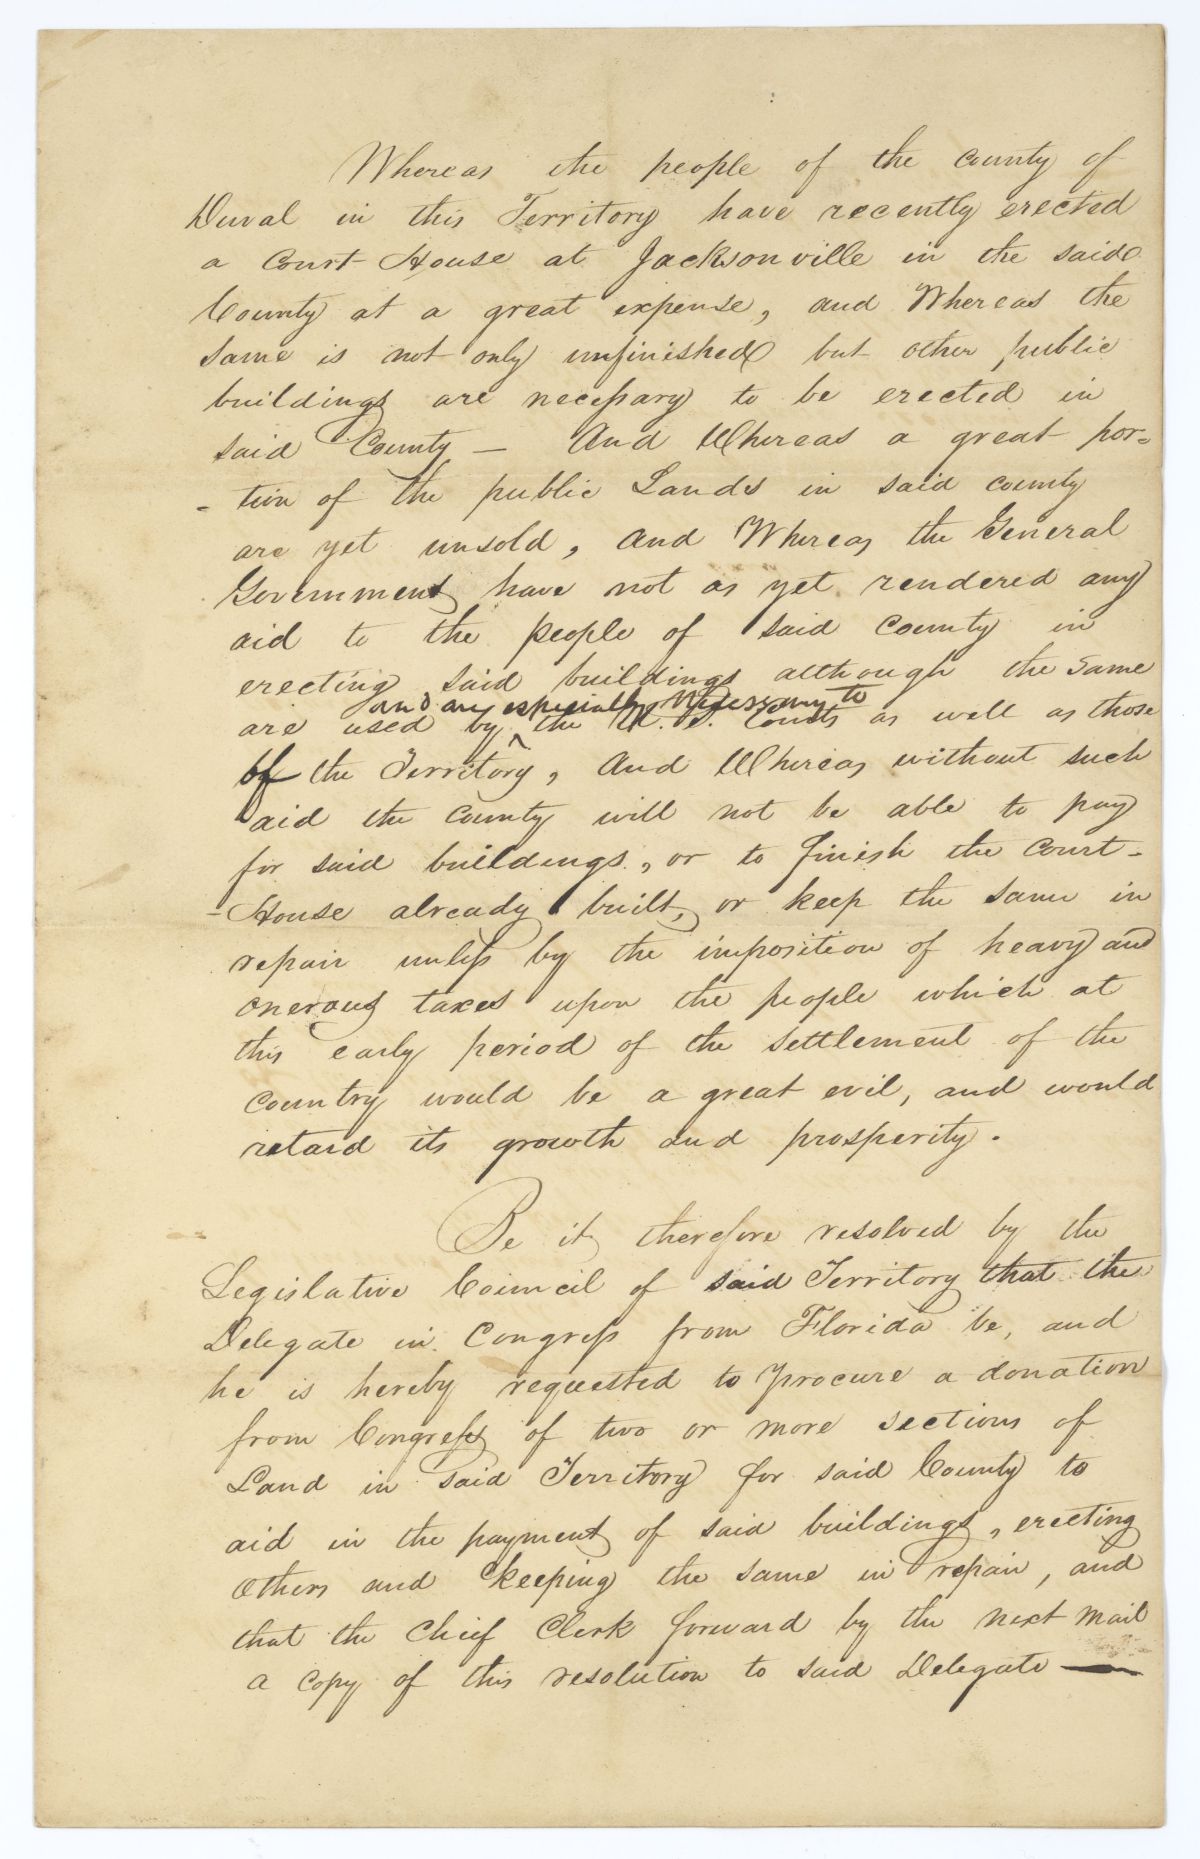 Whereas the people of the county of
Duval in this Territory have recently erected
a Court House at Jacksonville in the said
County at a great expense, and Whereas the
same is not only unfinished but other public
buildings are necessary to be erected in
said County — And Whereas a great por-
-tion of the public Lands in said county
are yet unsold, and Whereas the General
Government have not as yet rendered any
aid to the people of said County in
erecting said buildings although the same
and are especially necessary to
are used by the U. S. Courts as well as those
of the Territory, And Whereas without such
aid the county will not be able to pay
for said buildings, or to finish the Court-
-House already built, or keep the same in
repair unless by the imposition of heavy and
onerous taxes upon the people which at
this early period of the settlement of the
country would be a great evil, and would
retard its growth and prosperity.
Be it therefore resolved by the
Legislative Council of said Territory that the
Delegate in Congress from Florida be, and
he is hereby requested to procure a donation
from Congress of two or more sections of
Land in said Territory for said County to
aid in the payment of said buildings, erecting
others and keeping the same in repair, and
that the Chief Clerk forward by the next mail
a copy of this resolution to said Delegate —